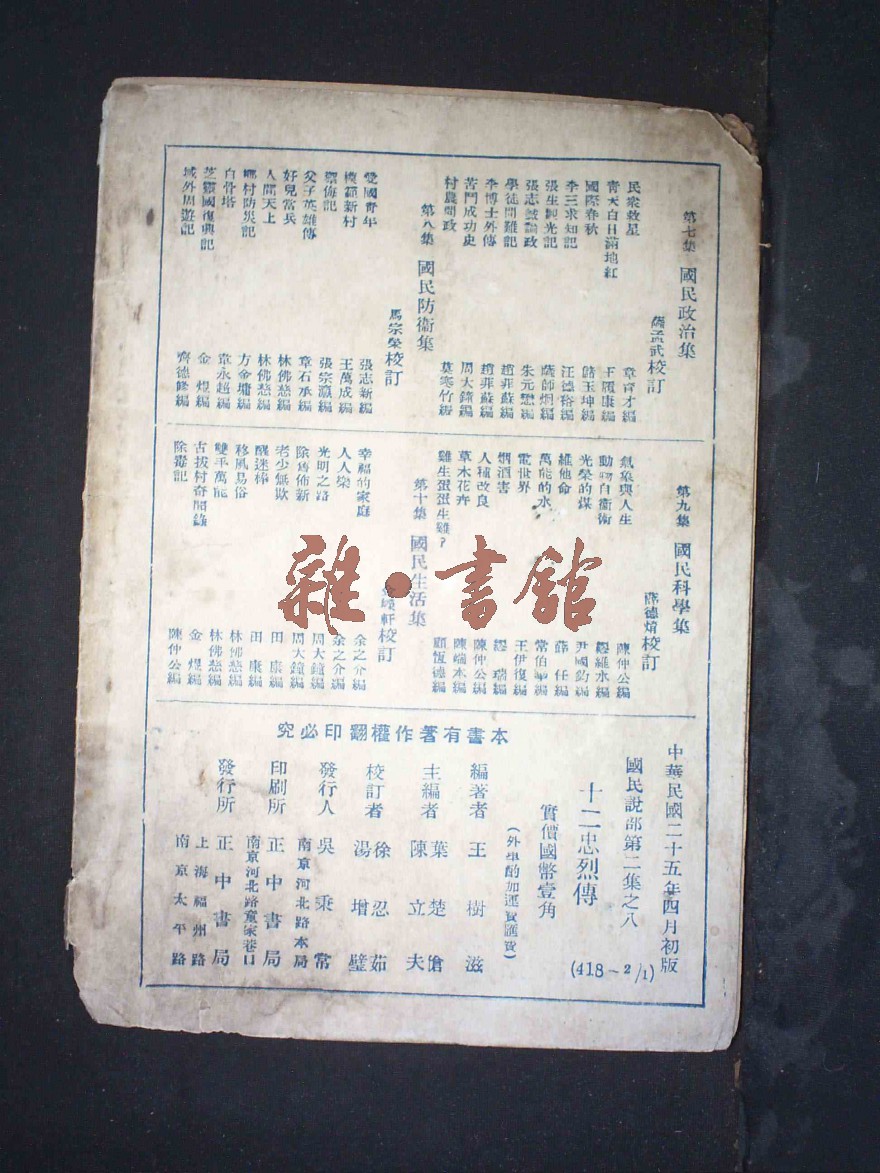 第七集 國民政治集
薩孟武校訂
民衆救星 章育才編
青天白日滿地紅 王履康編
國際春秋 皓玉坤編
李三求知記 汪德裕編
張生觀光記 薩師炯編
張志誠論政 朱元懋編
學徒問難記 趙非蘇編
李博士外傳 趙菲蘇編
苦鬥成功史 周大鐘編
村農問政 莫寒竹編
第八集 國民防衞集
馬宗榮校訂
愛國青年 張志新編
模範新村 王萬成編
禦侮記 張宗瀛編
父子英雄傳 章石承編
好兒當兵 林佛慈編
人間天上 林佛慈編
鄉村防災記 方金墉編
白骨塔 章永超編
芝蘭國復興記 金煜編
域外周遊記 齊德修編
第九集 國民科學集
薛德焴校訂
氣象與人生 陳仲公編
動物自衞術 繆維水編
光榮的煤 尹國鈞編
維他命 薛任編
萬能的水 常伯華編
電世界 王伊復編
烟酒害 繆瑞編
人種改良 陳仲公編
草木花卉 陳端本編
雞生蛋蛋生雞? 顧恆德編
第十集 國民生活集
軒校訂
幸福的家庭 余之介編
人人樂 余之介編
光明之路 周大鐘編
除舊佈新 周大鐘編
老少無欺 田康編
醒迷棒 田康編
移風易俗 林佛慈編
雙手萬能 林佛慈編
古拔村奇聞錄 金煜編
除毒記 陳仲公編
本書有著作權翻印必究
中華民國二十五年四月初版
國民說部第二集之八
十二忠烈傳
(418-2/1)
實價國幣壹角
(外埠酌加運費匯費)
編著者 王樹滋
主編者 葉楚傖 陳立夫
校訂者 徐忍茹 湯增璧
發行人 吳秉常
南京河北路本局
印刷所 正中書局
南京河北路童家巷口
發行所 正中書局
上海福州路
南京太平路
雜·書舘